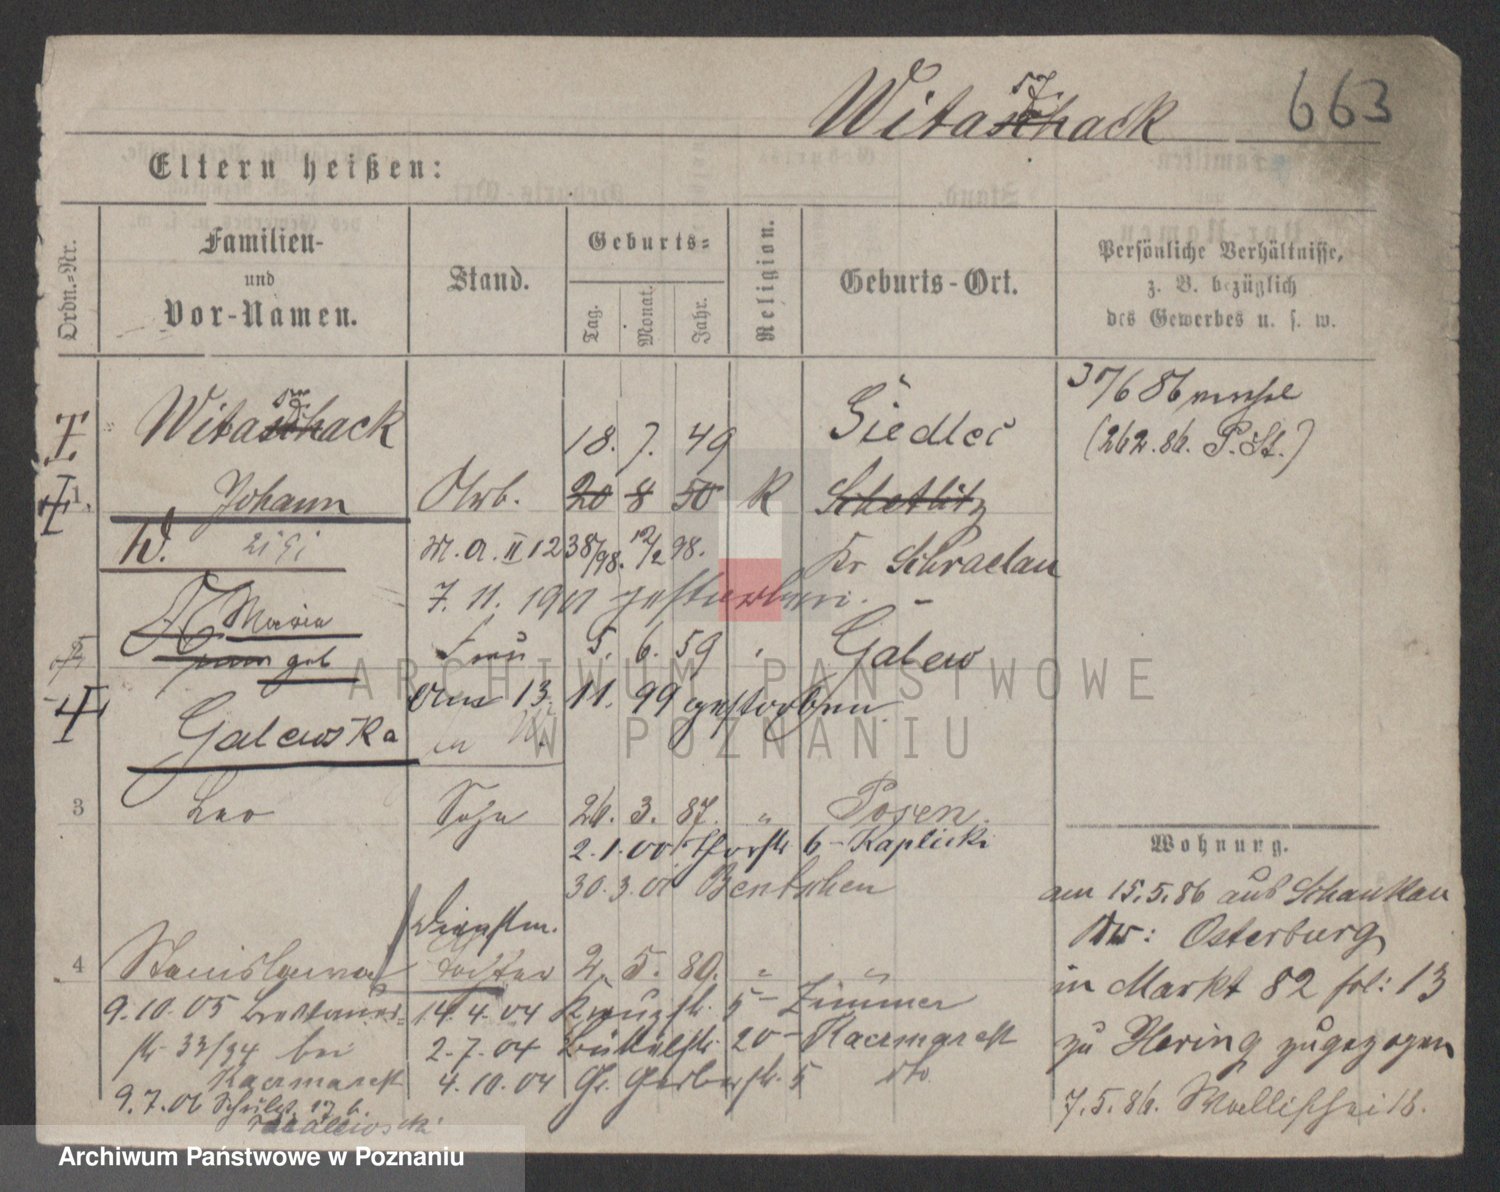 663
Witaschack
sz
Eltern heißen:
Ordn.-Nr.
Familien-
und
Vor-Namen.
Stand.
Geburts-
Tag.
Monat.
Jahr.
Religion.
Geburts-Ort.
Persönliche Verhältnisse,
z. B. bezüglich
des Gewerbes u. s. w.
Witaschack
18. 7. 49
Siedlec
(262.86. P.St.)
1.
Johann
Arb.
20 8 50
K
W.
M. A. II 1238/98. 12/2 98.
Kr Schraelau
7. 11. 1901 gestorben.
Maria
2
geb
Frau
5. 6. 59
Galew
Galewska
am 13. 11. 99 gestorben
in
3
Leo
Sohn
26. 3. 87.
"
Posen.
2.1.00 6 - Kaplicki
30.3.01 Bentschen
Wohnung.
am 15.5.86 aus Schankau
Kr: Osterburg
in Markt 82 fol: 13
zu Hering zugezogen
7.5.86. Wollischei 18.
Dienstm.
4
Stanislawa
Tochter
2. 5. 80.
"
"
9.10.05 Breslauer-
14.4.04 Kreuzstr. 5 - Zimmer
str 33/34 bei
2.7.04 Büttelstr. 20 - Kaczmarek
Kaczmarek
4.10.04 Gr. Gerberstr. 5 dto
9.7.06 Schulst. 17 b.
ARCHIWUM PAŃSTWOWE
W POZNANIU
Archiwum Państwowe w Poznaniu